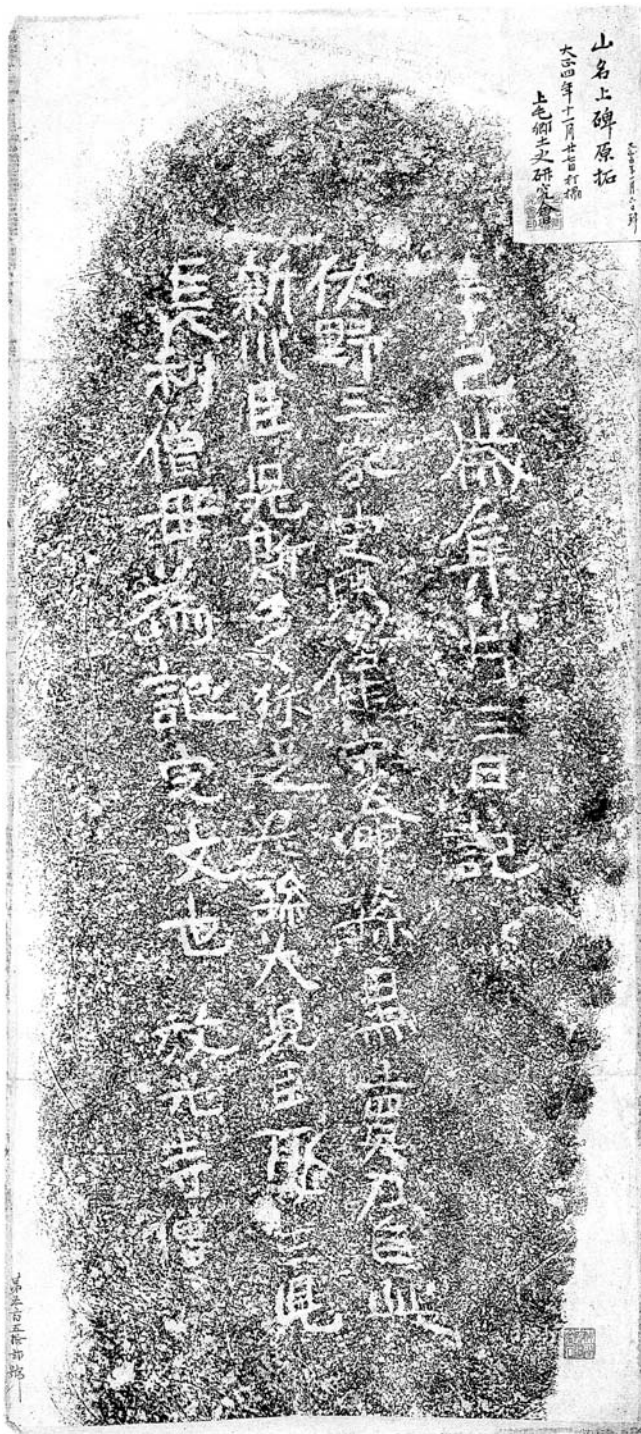 山名上碑原拓
大正四年十一月廿七日打搨
上毛郷土史研究會
辛己歳集月三日記
佐野三家定賜健守命孫黒賣刀自此
新川臣児斯多々弥足尼孫大児臣娶生児
長利僧母為記定文也 放光寺僧